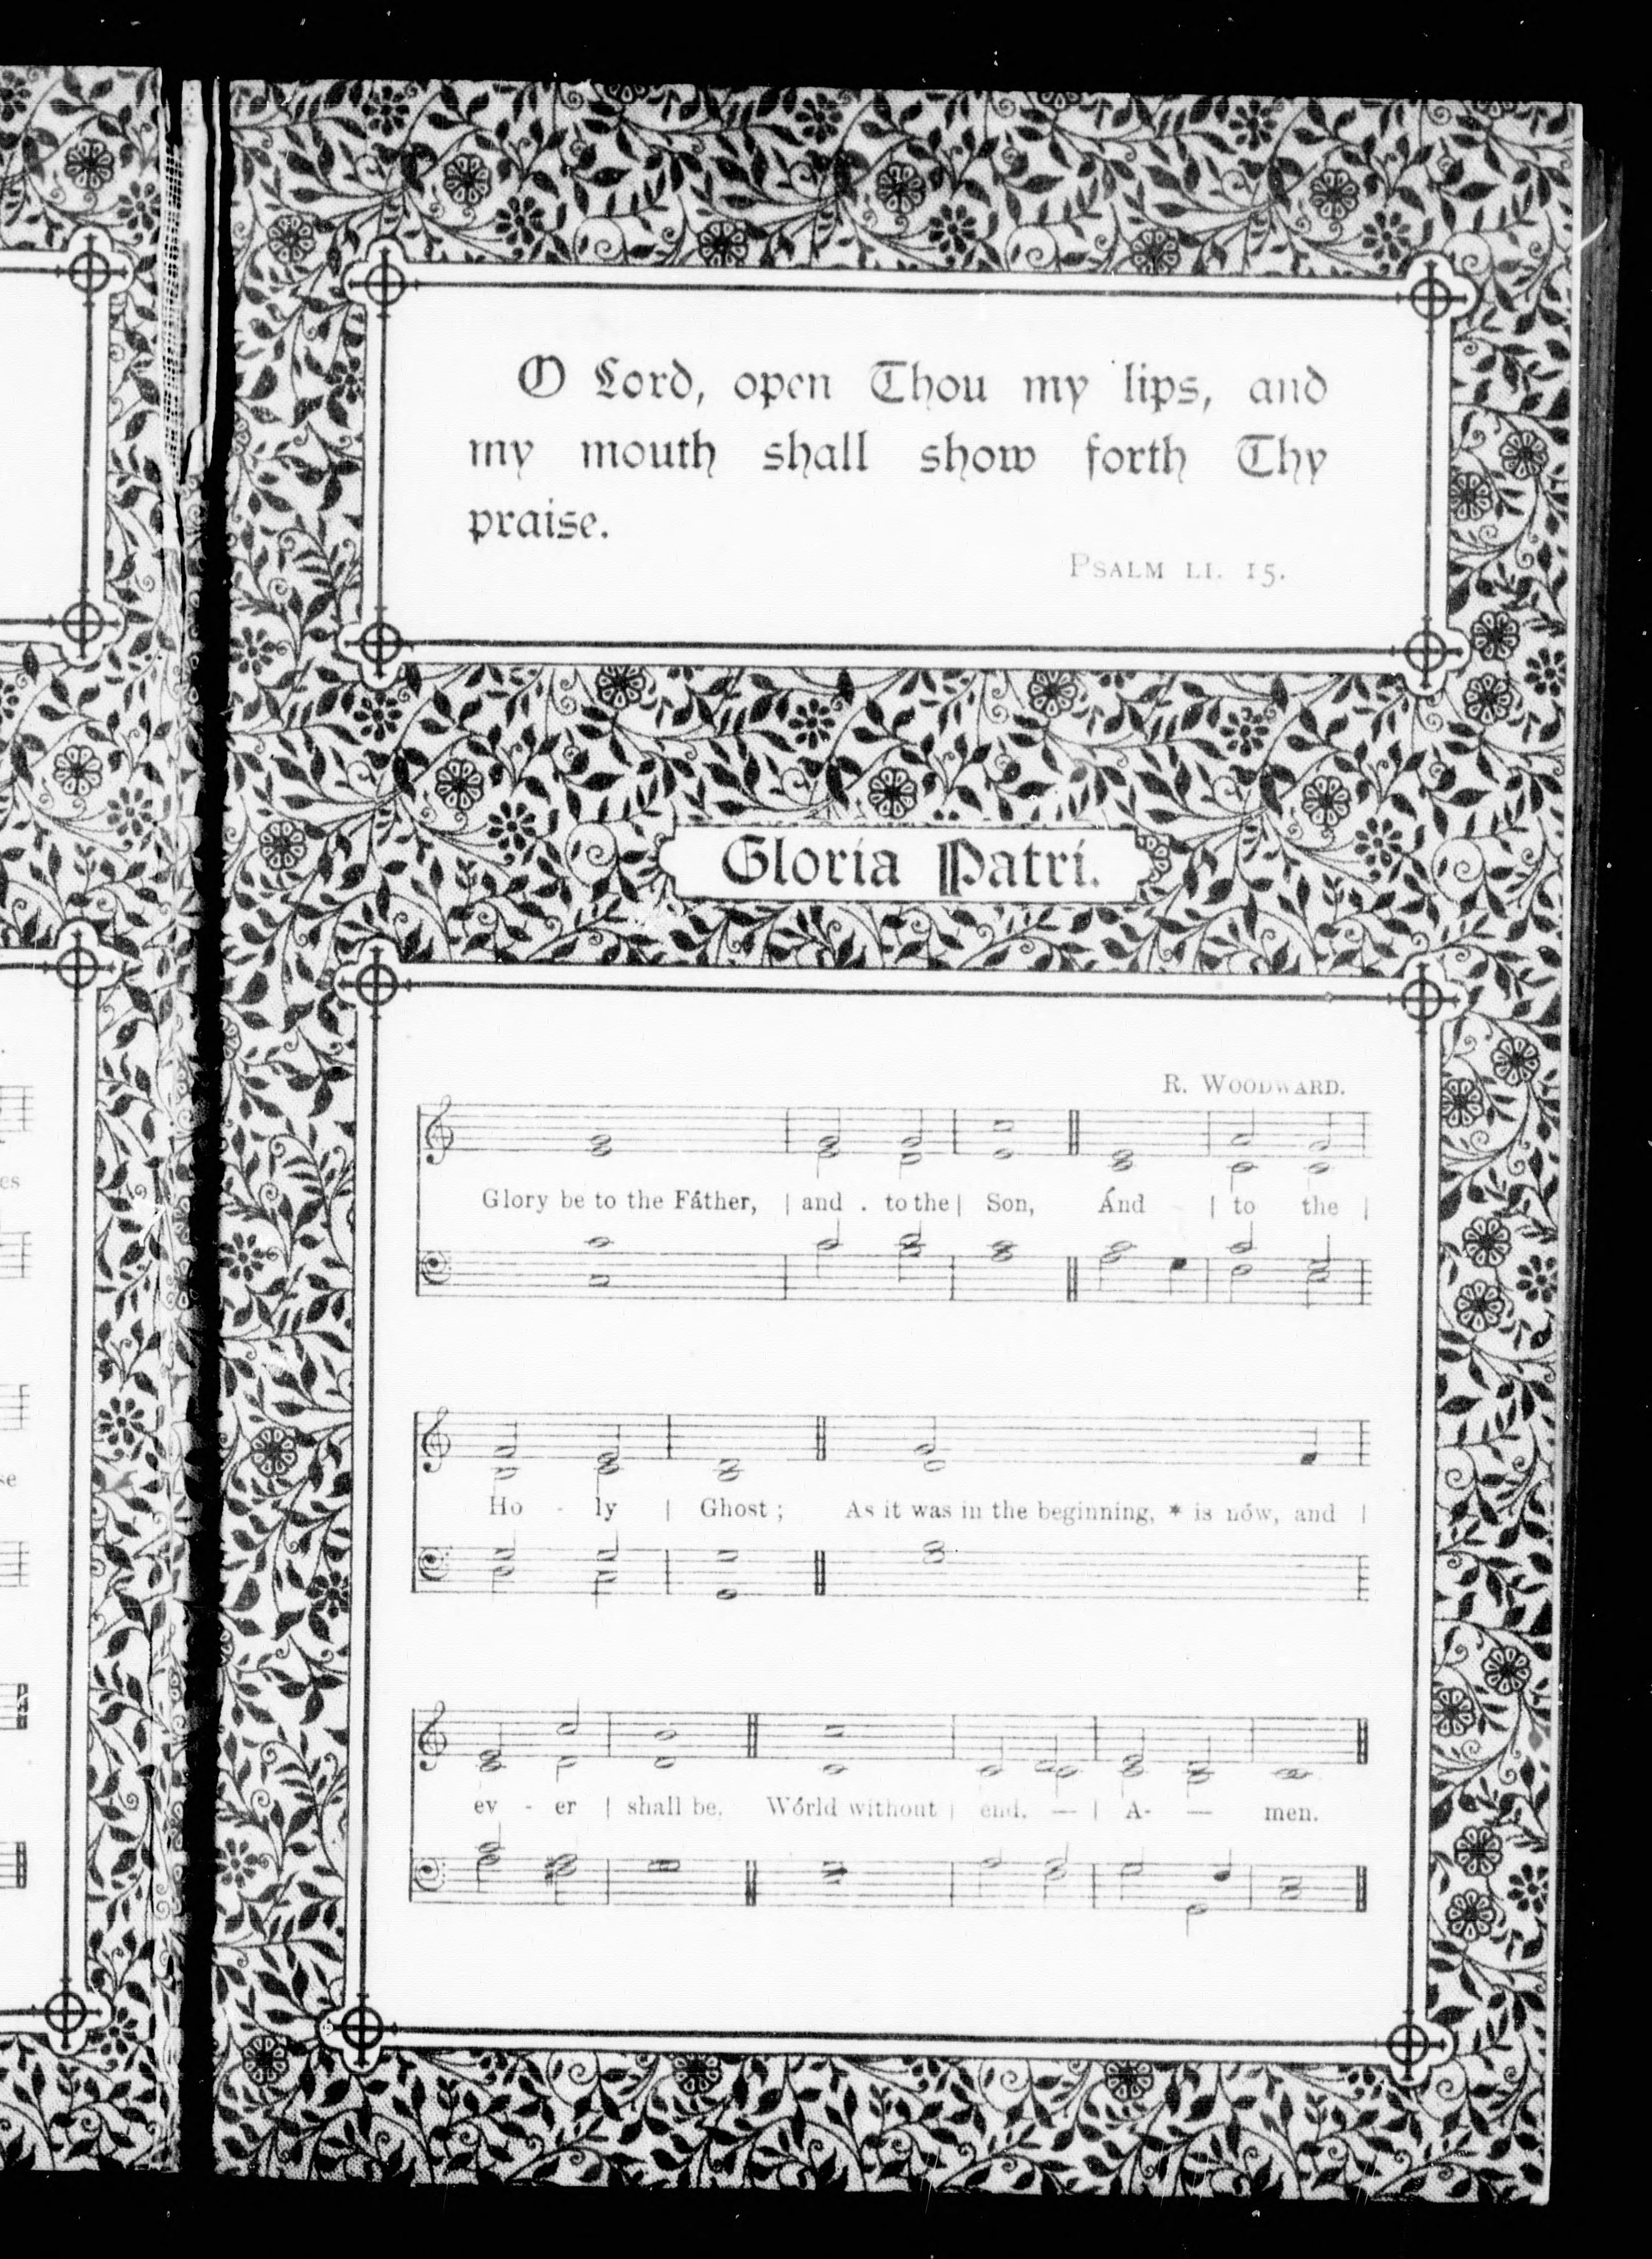 O Lord, open Thou my lips, and
my mouth shall show forth Thy
praise.
PSALM LI. 15.
Gloria Patri.
R. WOODWARD.
Glory be to the Fáther, | and . to the | Son, Ánd | to the |
Ho - ly | Ghost ; As it was in the beginning, * is nów, and |
ev - er | shall be, Wórld without | end. — | A- — men.
es
se